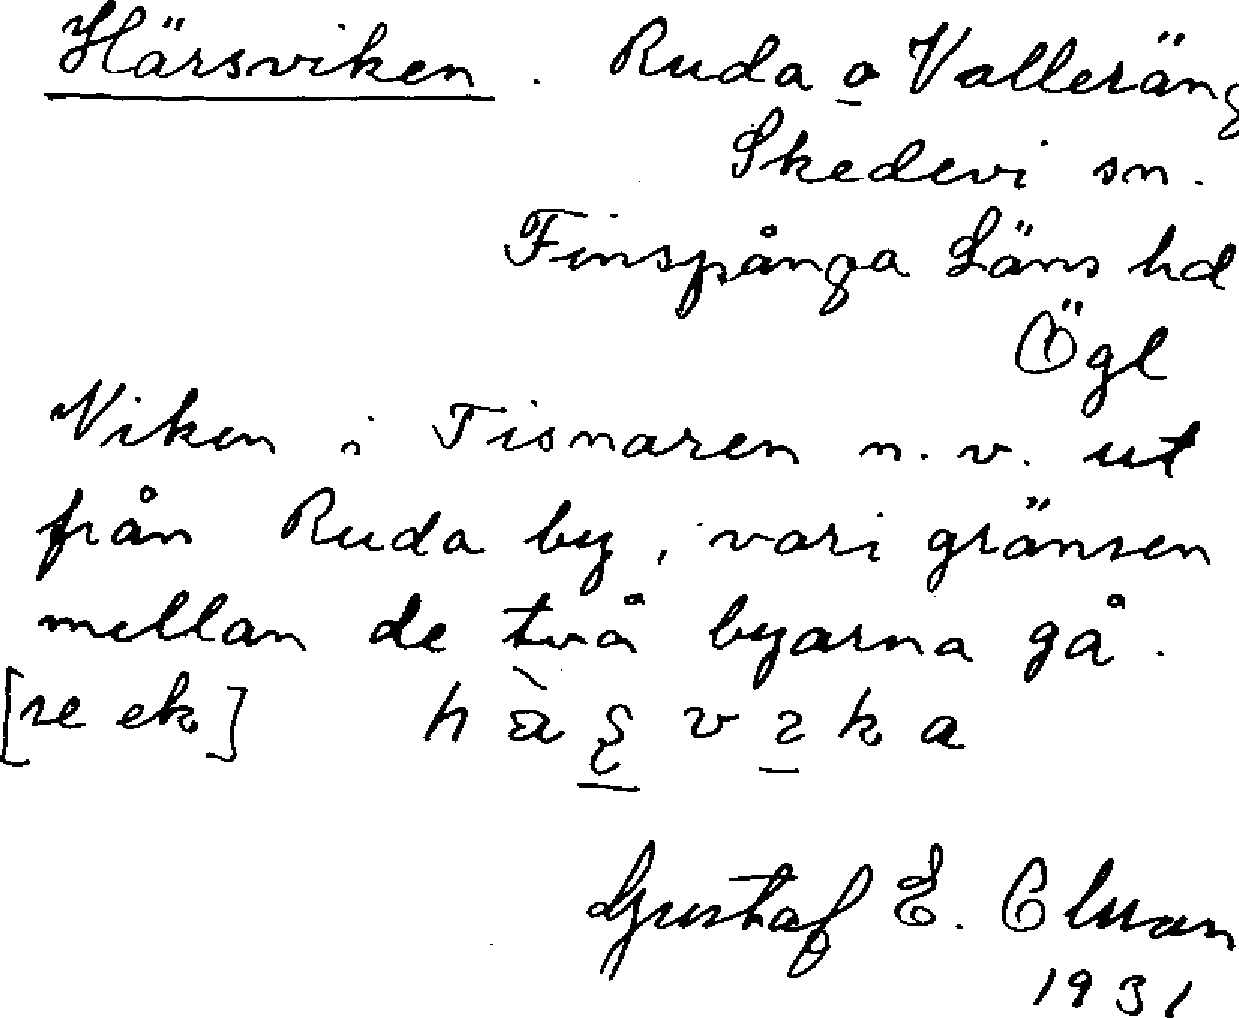 Härsviken. Ruda o Valleräng
Skedevi sn.
Finspånga Läns hd
Ögl
Viken i Tisnaren n.v. ut
från Ruda by, vari gränsen
mellan de två byarna gå.
[se ek]
Gustaf E.
1931